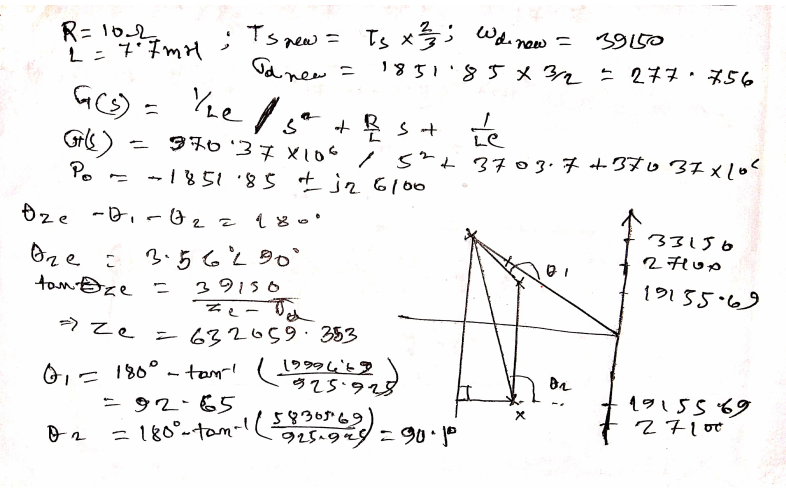 R = 10Ω
L = 7.7mH ; Ts new = Ts × 2/3 ; ωd new = 39150
σd new = 1851.85 × 3/2 = 277.756
G(s) = 1/Le / s² + R/L s + 1/Le
G(s) = 370.37 × 10⁶ / s² + 3703.7 + 37037 × 10⁶
P₀ = -1851.85 ± j26100
θze - θ1 - θ2 = 180°
θze = 3.56°∠90°
tanθze = 39150 / ze - σd
⇒ Ze = 632659.353
θ1 = 180° - tan⁻¹ (19994.69 / 925.925)
= 92.65
θ2 = 180° - tan⁻¹ (58305.69 / 925.925) = 90.1°
θ1
θ2
33150
27100
19155.69
19155.69
27100